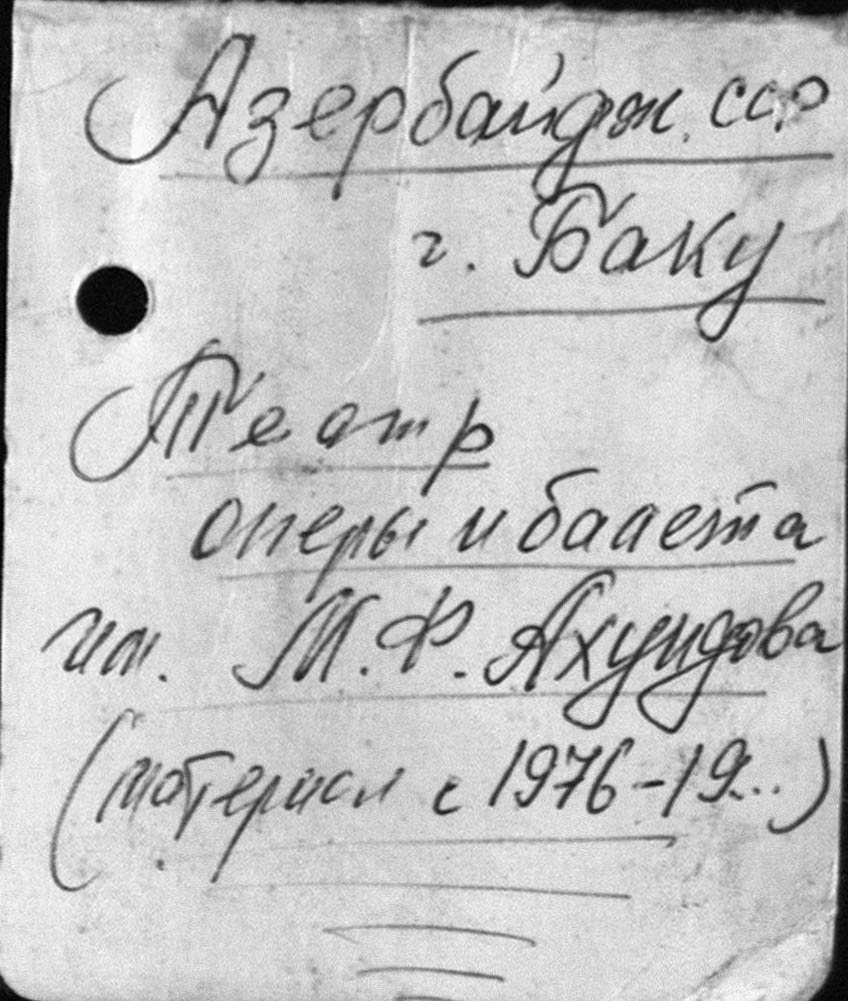 Азербайдж. ССР
г. Баку
Театр
оперы и балета
им. М.Ф. Ахундова
(материал с 1976-19...)